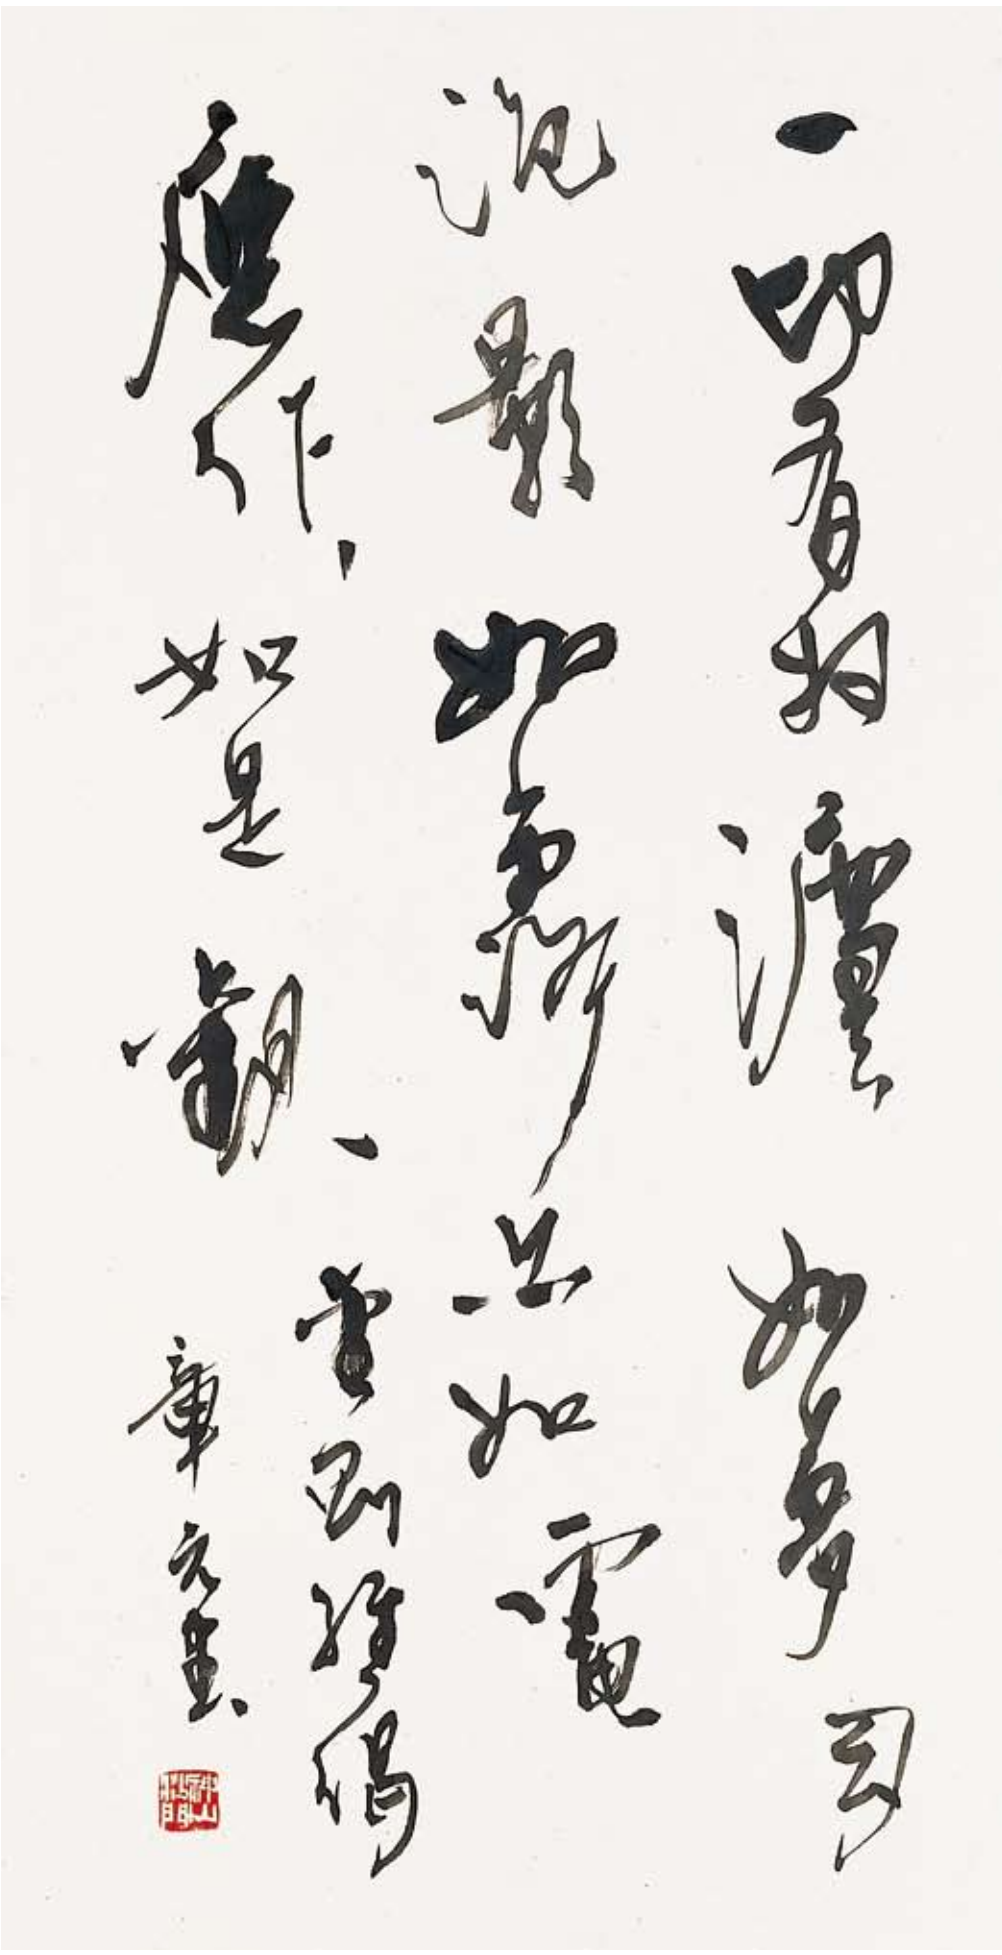 一切有為灋如夢幻
泡影如露亦如電
應作如是觀
金剛經偈
章